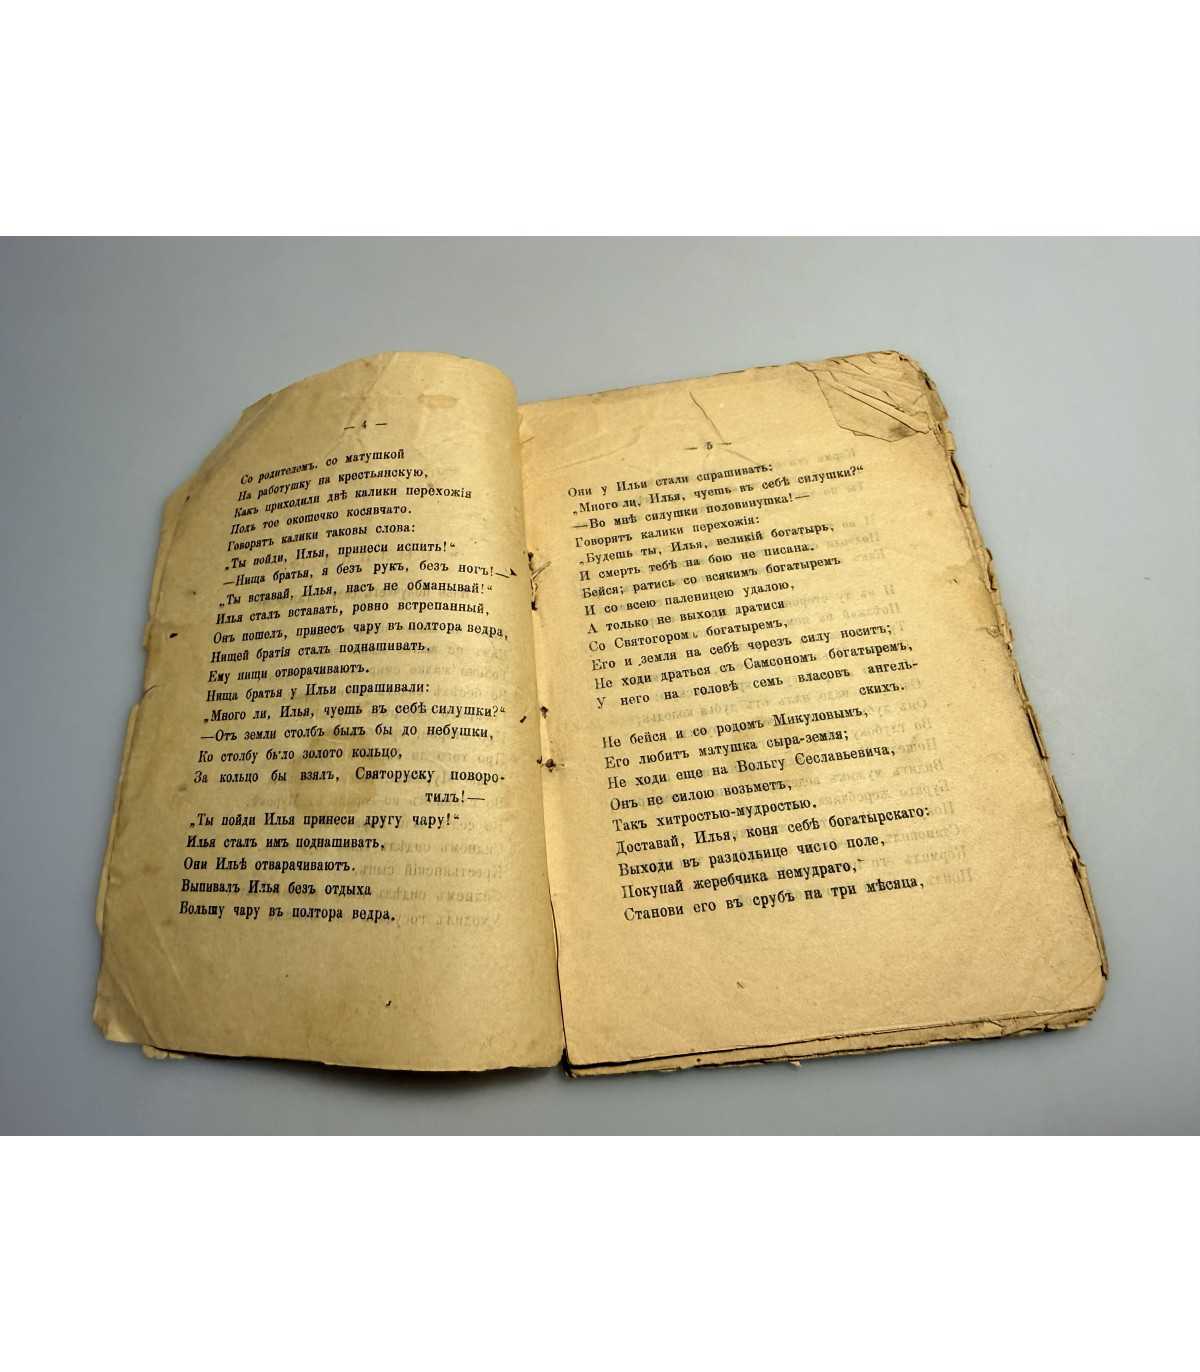 — 4 —
Со родителемъ, со матушкой
На работушку на крестьянскую,
Какъ приходили двѣ калики перехожія
Подъ тое окошечко косявчато.
Говорятъ калики таковы слова:
„Ты пойди, Илья, принеси испить!“
—Нища братья, я безъ рукъ, безъ ногъ!—
„Ты вставай, Илья, насъ не обманывай!“
Илья сталъ вставать, ровно встрепанный,
Онъ пошелъ, принесъ чару въ полтора ведра,
Нищей братія сталъ поднашивать,
Ему нищи отворачиваютъ.
Нища братья у Ильи спрашивали:
„Много ли, Илья, чуешь въ себѣ силушки?“
—Отъ земли столбъ былъ бы до небушки,
Ко столбу было золото кольцо,
За кольцо бы взялъ, Святоруску поворо-
тилъ!—
„Ты пойди Илья принеси другу чару!“
Илья сталъ имъ поднашивать,
Они Ильѣ отварачиваютъ.
Выпивалъ Илья безъ отдыха
Большу чару въ полтора ведра.
— 5 —
Они у Ильи стали спрашивать:
„Много ли, Илья, чуешь въ себѣ силушки?“
—Во мнѣ силушки половинушка!—
Говорятъ калики перехожія:
„Будешь ты, Илья, великій богатырь,
И смерть тебѣ на бою не писана.
Бейся; ратись со всякимъ богатыремъ
И со всею паленицею удалою,
А только не выходи дратися
Со Святогоромъ богатыремъ,
Его и земля на себѣ черезъ силу носитъ;
Не ходи драться съ Самсономъ богатыремъ,
У него на головѣ семь власовъ ангель-
скихъ.
Не бейся и со родомъ Микуловымъ,
Его любитъ матушка сыра-земля;
Не ходи еще на Вольгу Сеславьевича,
Онъ не силою возьметъ,
Такъ хитростью-мудростью.
Доставай, Илья, коня себѣ богатырскаго:
Выходи въ раздольице чисто поле,
Покупай жеребчика немудраго,
Станови его въ срубъ на три мѣсяца,